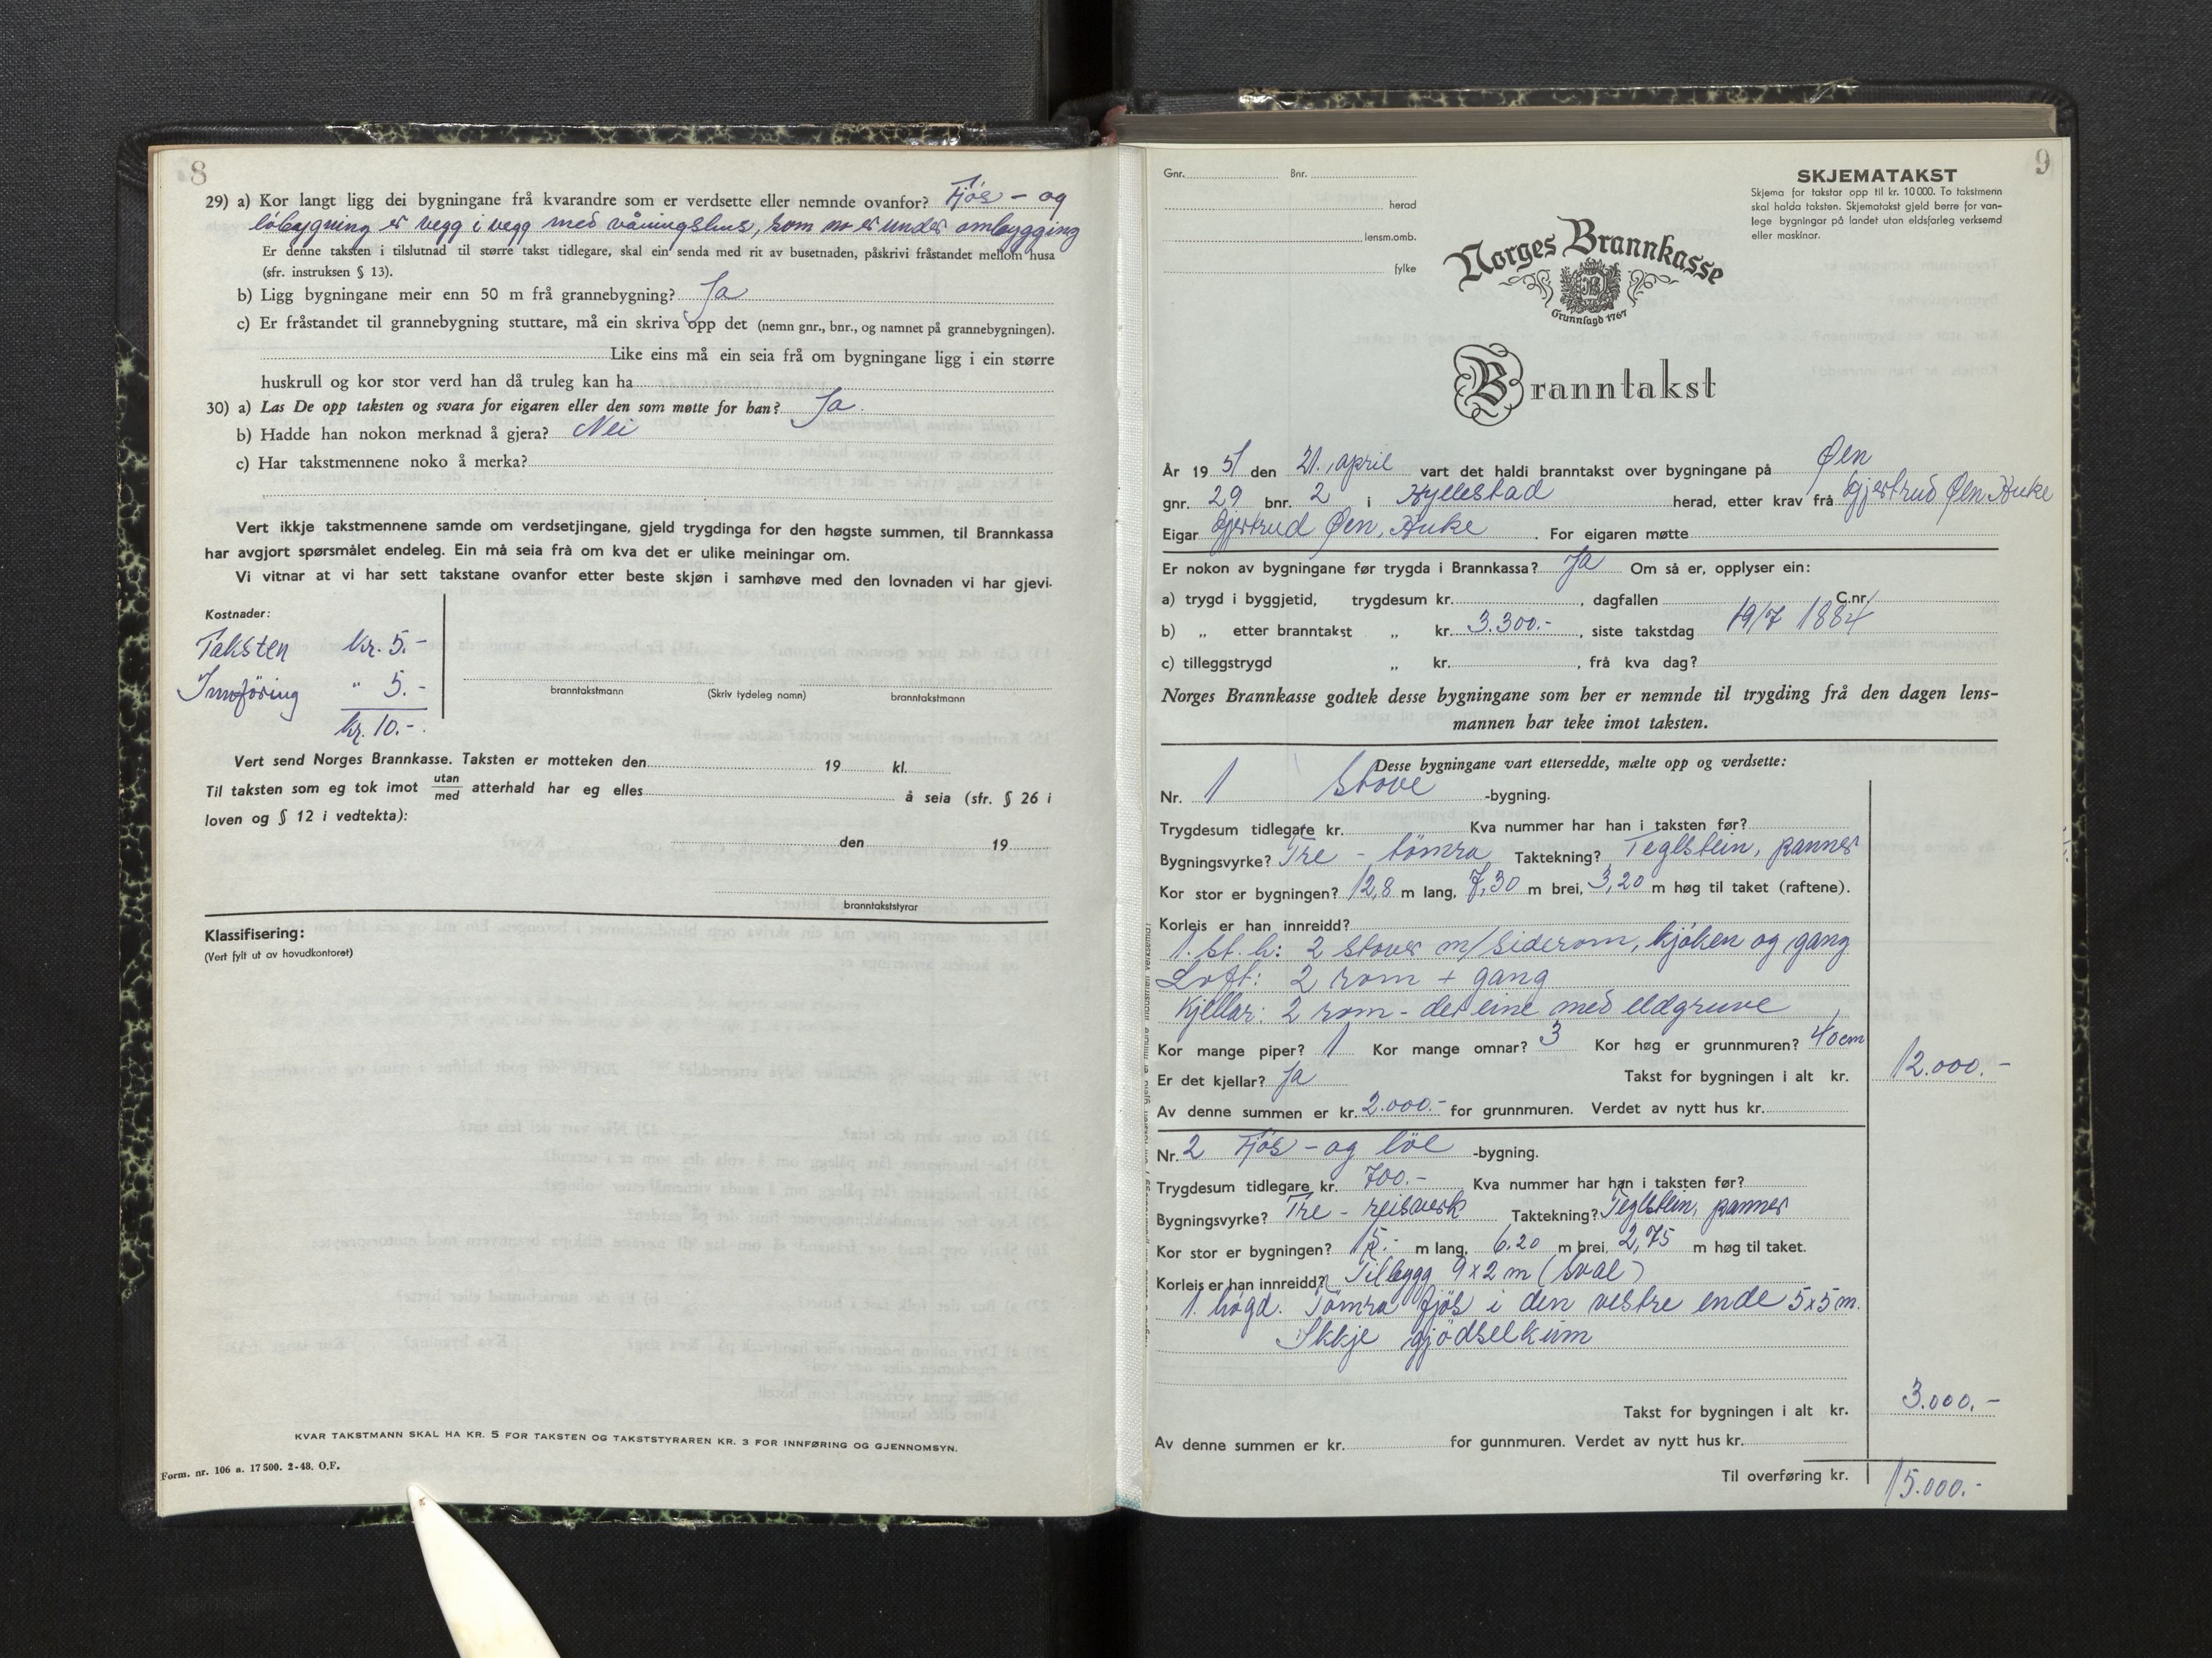 8
29) a) Kor langt ligg dei bygningane frå kvarandre som er verdsette eller nemnde ovanfor? Fjøs - og
løbygning er vegg i vegg med våningshus, som no er under ombygging
Er denne taksten i tilslutnad til større takst tidlegare, skal ein senda med rit av busetnaden, påskrivi fråstandet mellom husa
(sfr. instruksen § 13).
b) Ligg bygningane meir enn 50 m frå grannebygning? Ja
c) Er fråstandet til grannebygning stuttare, må ein skriva opp det (nemn gnr., bnr., og namnet på grannebygningen).
Like eins må ein seia frå om bygningane ligg i ein større
huskrull og kor stor verd han då truleg kan ha
30) a) Las De opp taksten og svara for eigaren eller den som møtte for han? Ja.
b) Hadde han nokon merknad å gjera? Nei
c) Har takstmennene noko å merka?
Vert ikkje takstmennene samde om verdsetjingane, gjeld trygdinga for den høgste summen, til Brannkassa
har avgjort spørsmålet endeleg. Ein må seia frå om kva det er ulike meiningar om.
Vi vitnar at vi har sett takstane ovanfor etter beste skjøn i samhøve med den lovnaden vi har gjevi.
Kostnader:
Taksten kr. 5.-
Innføring " 5.-
kr. 10.-
branntakstmann (Skriv tydeleg namn) branntakstmann
Vert send Norges Brannkasse. Taksten er motteken den 19 kl.
Til taksten som eg tok imot utan/med atterhald har eg elles å seia (sfr. § 26 i
loven og § 12 i vedtekta):
den 19
branntakststyrar
Klassifisering:
(Vert fylt ut av hovudkontoret)
KVAR TAKSTMANN SKAL HA KR. 5 FOR TAKSTEN OG TAKSTSTYRAREN KR. 3 FOR INNFØRING OG GJENNOMSYN.
Form. nr. 106 a. 17500. 2-48. O.F.
9
Gnr. Bnr.
herad
lensm.omb.
fylke
SKJEMATAKST
Skjema for takstar opp til kr. 10 000. To takstmenn
skal halda taksten. Skjematakst gjeld berre for van-
lege bygningar på landet utan eldsfarleg verksemd
eller maskinar.
Norges Brannkasse
Grunnlagd 1767
Branntakst
År 1951 den 21. april vart det haldi branntakst over bygningane på Øen
gnr. 29 bnr. 2 i Hyllestad herad, etter krav frå Gjertrud Øen Huke
Eigar Gjertrud Øen, Huke. For eigaren møtte
Er nokon av bygningane før trygda i Brannkassa? Ja Om så er, opplyser ein:
a) trygd i byggjetid, trygdesum kr. , dagfallen C.nr.
b) „ etter branntakst „ kr. 3.300.- , siste takstdag 19/7 1884
c) tilleggstrygd „ kr. , frå kva dag?
Norges Brannkasse godtek desse bygningane som her er nemnde til trygding frå den dagen lens-
mannen har teke imot taksten.
Desse bygningane vart ettersedde, mælte opp og verdsette:
Nr. 1 Stove -bygning.
Trygdesum tidlegare kr. Kva nummer har han i taksten før?
Bygningsvyrke? Tre - tømra Taktekning? Teglstein, panner
Kor stor er bygningen? 12,8 m lang, 7,30 m brei, 3,20 m høg til taket (raftene).
Korleis er han innreidd?
1. st. h: 2 stover m/siderom, kjøken og gang
Loft: 2 rom + gang
Kjellar: 2 rom - det eine med eldgruve
Kor mange piper? 1 Kor mange omnar? 3 Kor høg er grunnmuren? 40 cm
Er det kjellar? Ja Takst for bygningen i alt kr. 12.000.-
Av denne summen er kr. 2.000.- for grunnmuren. Verdet av nytt hus kr.
Nr. 2 Fjøs - og løe -bygning.
Trygdesum tidlegare kr. 700.- Kva nummer har han i taksten før?
Bygningsvyrke? Tre - reisverk Taktekning? Teglstein, panner
Kor stor er bygningen? 15.- m lang, 6.20 m brei, 2,75 m høg til taket.
Korleis er han innreidd? Tilbygg 9x2 m (sval)
1. høgd. Tømra fjøs i den vestre ende 5x5 m.
Ikkje gjødselkum
Takst for bygningen i alt kr. 3.000.-
Av denne summen er kr. for gunnmuren. Verdet av nytt hus kr.
Til overføring kr. 15.000.-